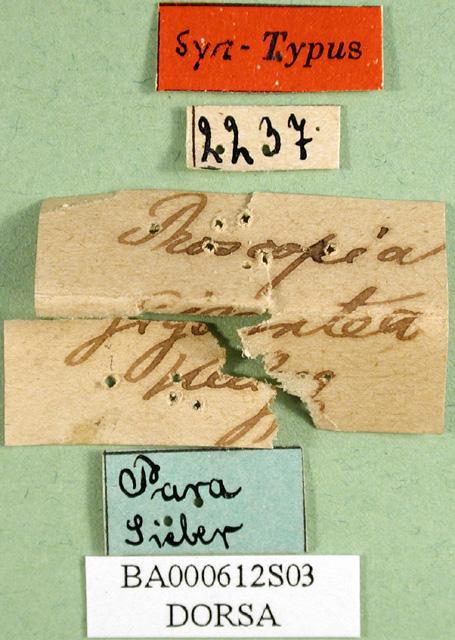 Syn-Typus
2237.
Proscopia
gigantea
Klug
Para
Sieber
BA000612S03
DORSA